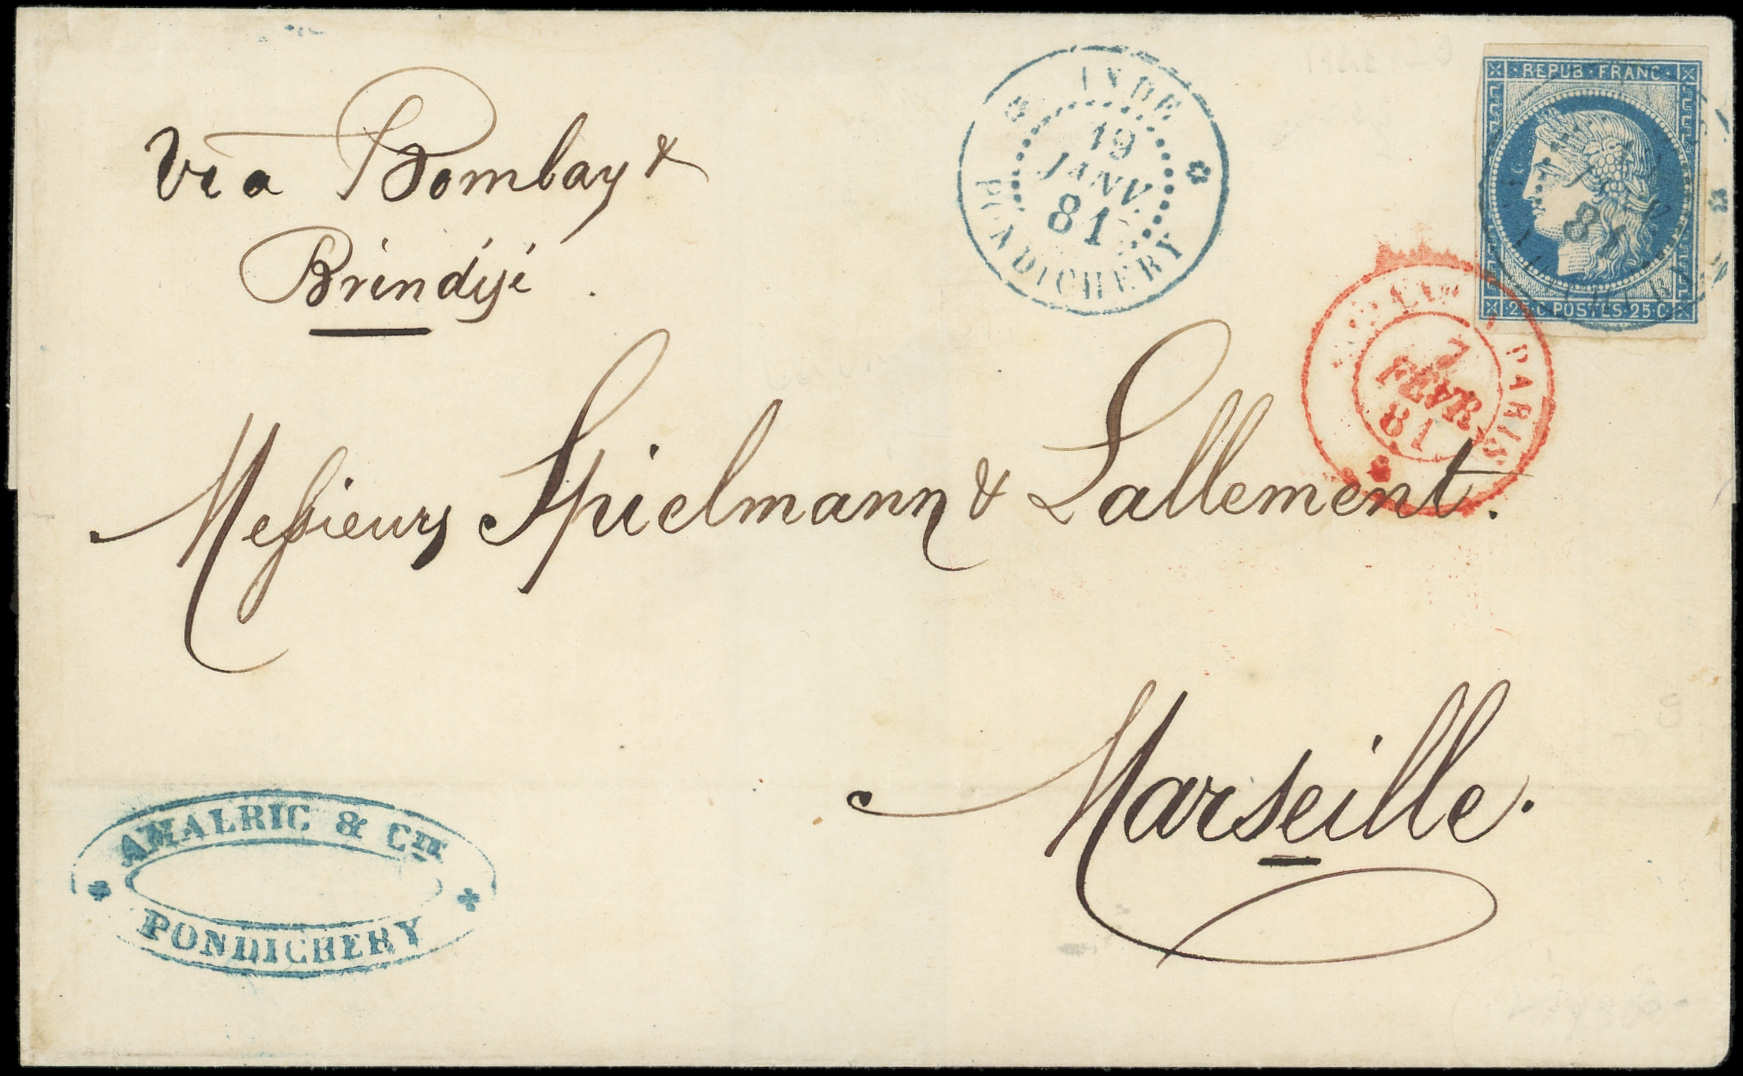 Via Bombay &
Brindisi.
INDE
19
JANV.
81
PONDICHERY
REPUB·FRANC·
81
25·C·POSTES·25·C
PARIS
7
FEVR
81
Messieurs Spielmann & Lallement.
Marseille.
AMALRIC & CIE
PONDICHERY